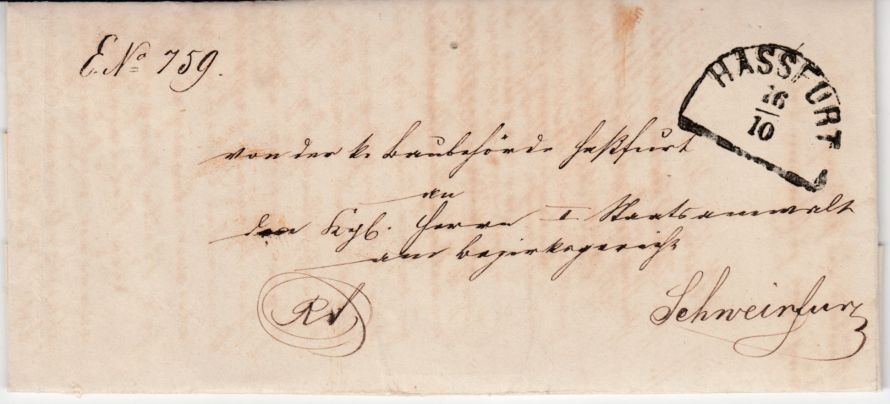 E. No 759.
HASSFURT
16
10
von der k. Baubehörde Haßfurt
an
den Kgl. Herrn I Staatsanwalt
am Bezirksgericht
Schweinfurt